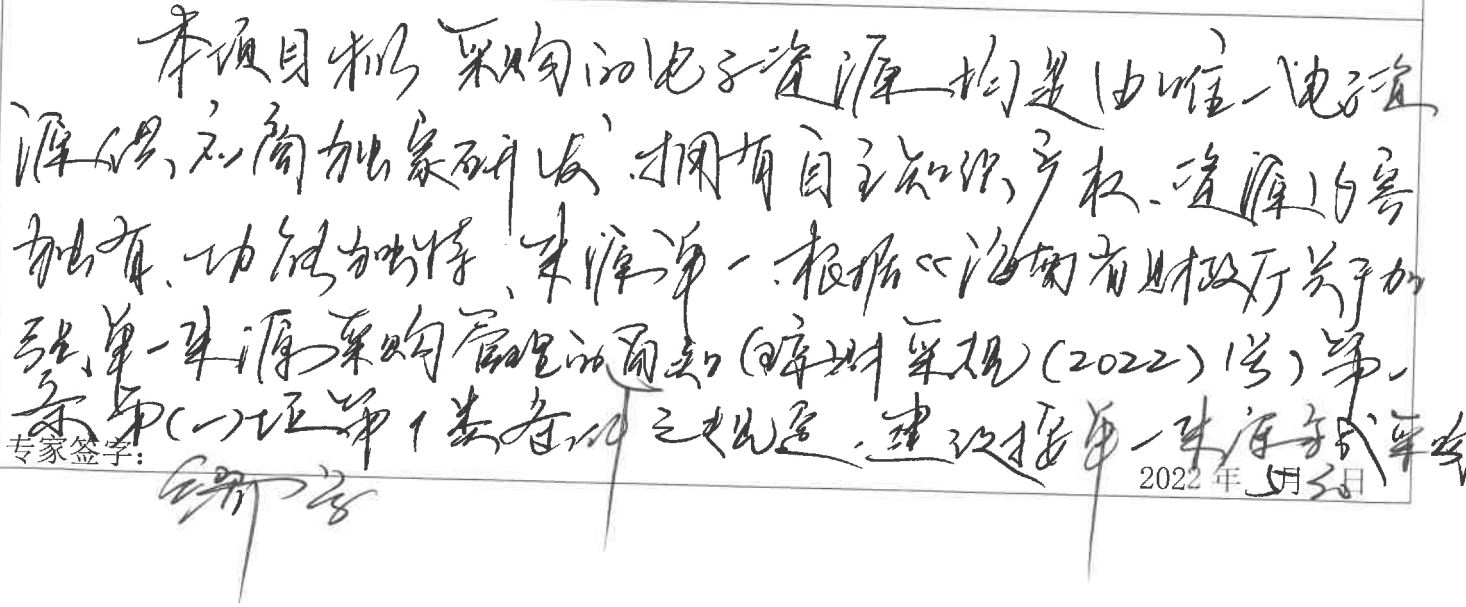 本项目拟采购的电子资源均是由唯一电子资
源供应商独家研发、拥有自主知识产权、资源内容
独有、功能独特、来源单一。根据《海南省财政厅关于加
强单一来源采购管理的通知(琼财采规(2022)1号)第一
条第(一)项第1类条件之规定，建议按单一来源方式采购
专家签字：
2022年5月30日